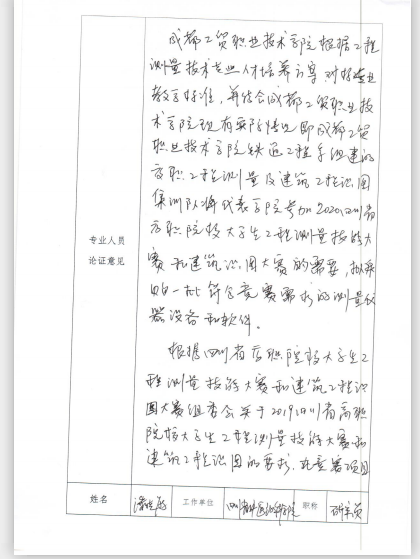 成都工贸职业技术学院根据工程
测量技术专业人才培养方案对标专业
教学标准，并结合成都工贸职业技
术学院现有实际情况即成都工贸
职业技术学院铁道工程系组建的
高职工程测量及建筑工程识图
集训队将代表学院参加2020四川省
高职院校大学生工程测量技能大
赛和建筑识图大赛的需要，拟采
购一批符合竞赛需求的测量仪
器设备和软件。
根据四川省高职院校大学生工
程测量技能大赛和建筑工程识
图大赛组委会关于2019四川省高职
院校大学生工程测量技能大赛和
建筑工程识图的要求，
竞赛项目
专业人员
论证意见
姓名 工作单位 职称